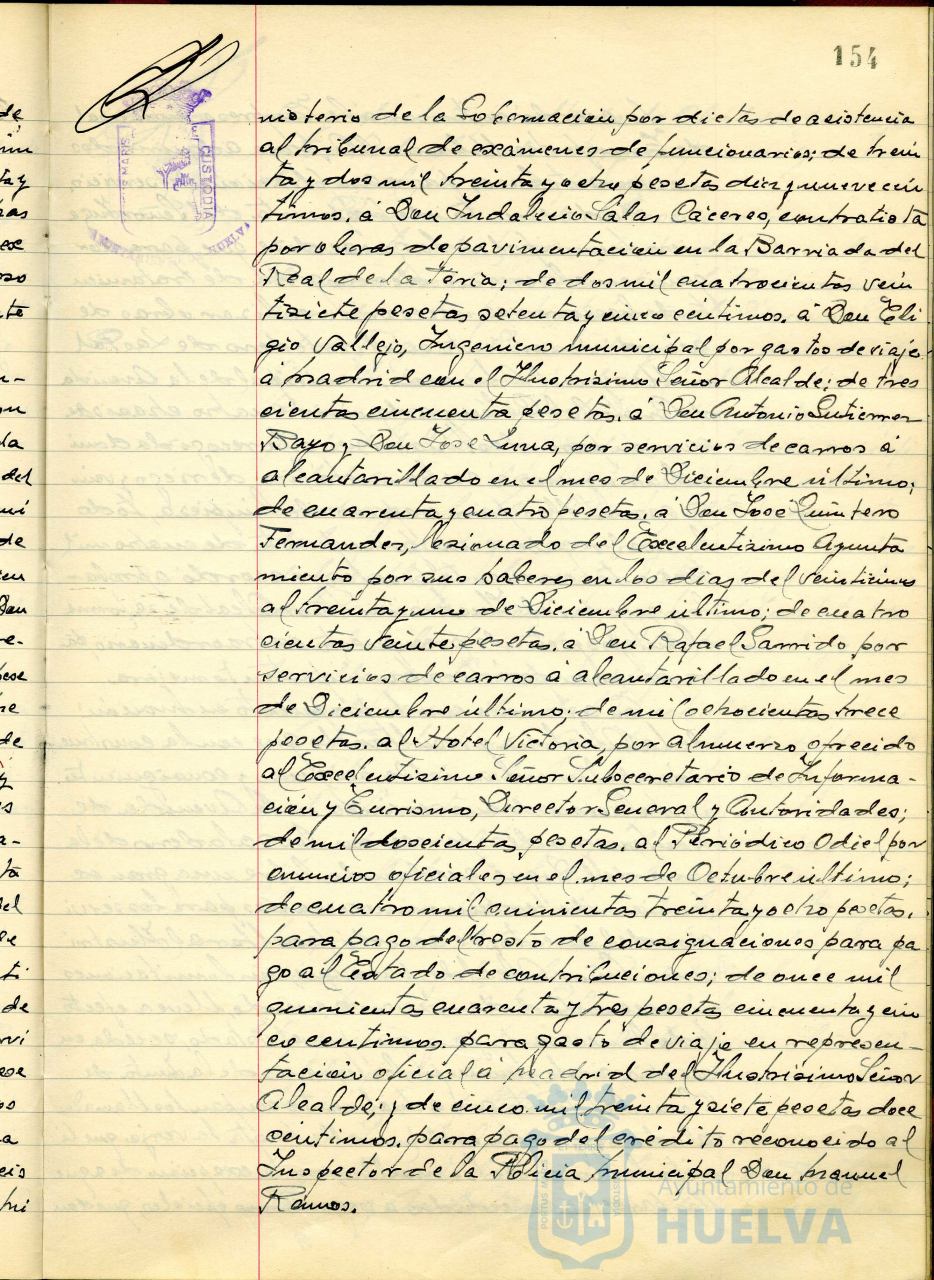 154
nisterio de la Gobernación, por dietas de asistencia
al tribunal de exámenes de funcionarios; de trein
ta y dos mil treinta y ocho pesetas diez y nueve cén
timos, á Don Indalecio Salas Cáceres, contratista
por obras de pavimentación en la Barriada del
Real de la Feria; de dos mil cuatrocientas vein
tisiete pesetas setenta y cinco céntimos, á Don Eli
gio Vallejo, Ingeniero municipal por gastos de viaje
á Madrid con el Ilustrísimo Señor Alcalde; de tres
cientas cincuenta pesetas, á Don Antonio Gutierrez
Bayo y Don José Luna, por servicios de carros á
alcantarillado en el mes de Diciembre último;
de cuarenta y cuatro pesetas, á Don José Quintero
Fernandez, lesionado del Excelentísimo Ayunta
miento por sus haberes en los dias del veinticinco
al treinta y uno de Diciembre último; de cuatro
cientas veinte pesetas, á Don Rafael Garrido por
servicios de carros á alcantarillado en el mes
de Diciembre último; de mil ochocientas trece
pesetas, al Hotel Victoria, por almuerzo ofrecido
al Excelentísimo Señor Subsecretario de Informa-
ción y Turismo, Director General y Autoridades;
de mil doscientas pesetas, al Periódico Odiel por
anuncios oficiales en el mes de Octubre último;
de cuatro mil quinientas treinta y ocho pesetas,
para pago del resto de consignaciones para pa
go al Estado de contribuciones; de once mil
quinientas cuarenta y tres pesetas cincuenta y cin
co centimos, para gasto de viaje en represen-
tación oficial á Madrid del Ilustrísimo Señor
Alcalde; y de cinco mil treinta y siete pesetas doce
céntimos, para pago del crédito reconocido al
Inspector de la Policia Municipal Don Manuel
Ramos.
Ayuntamiento de
HUELVA